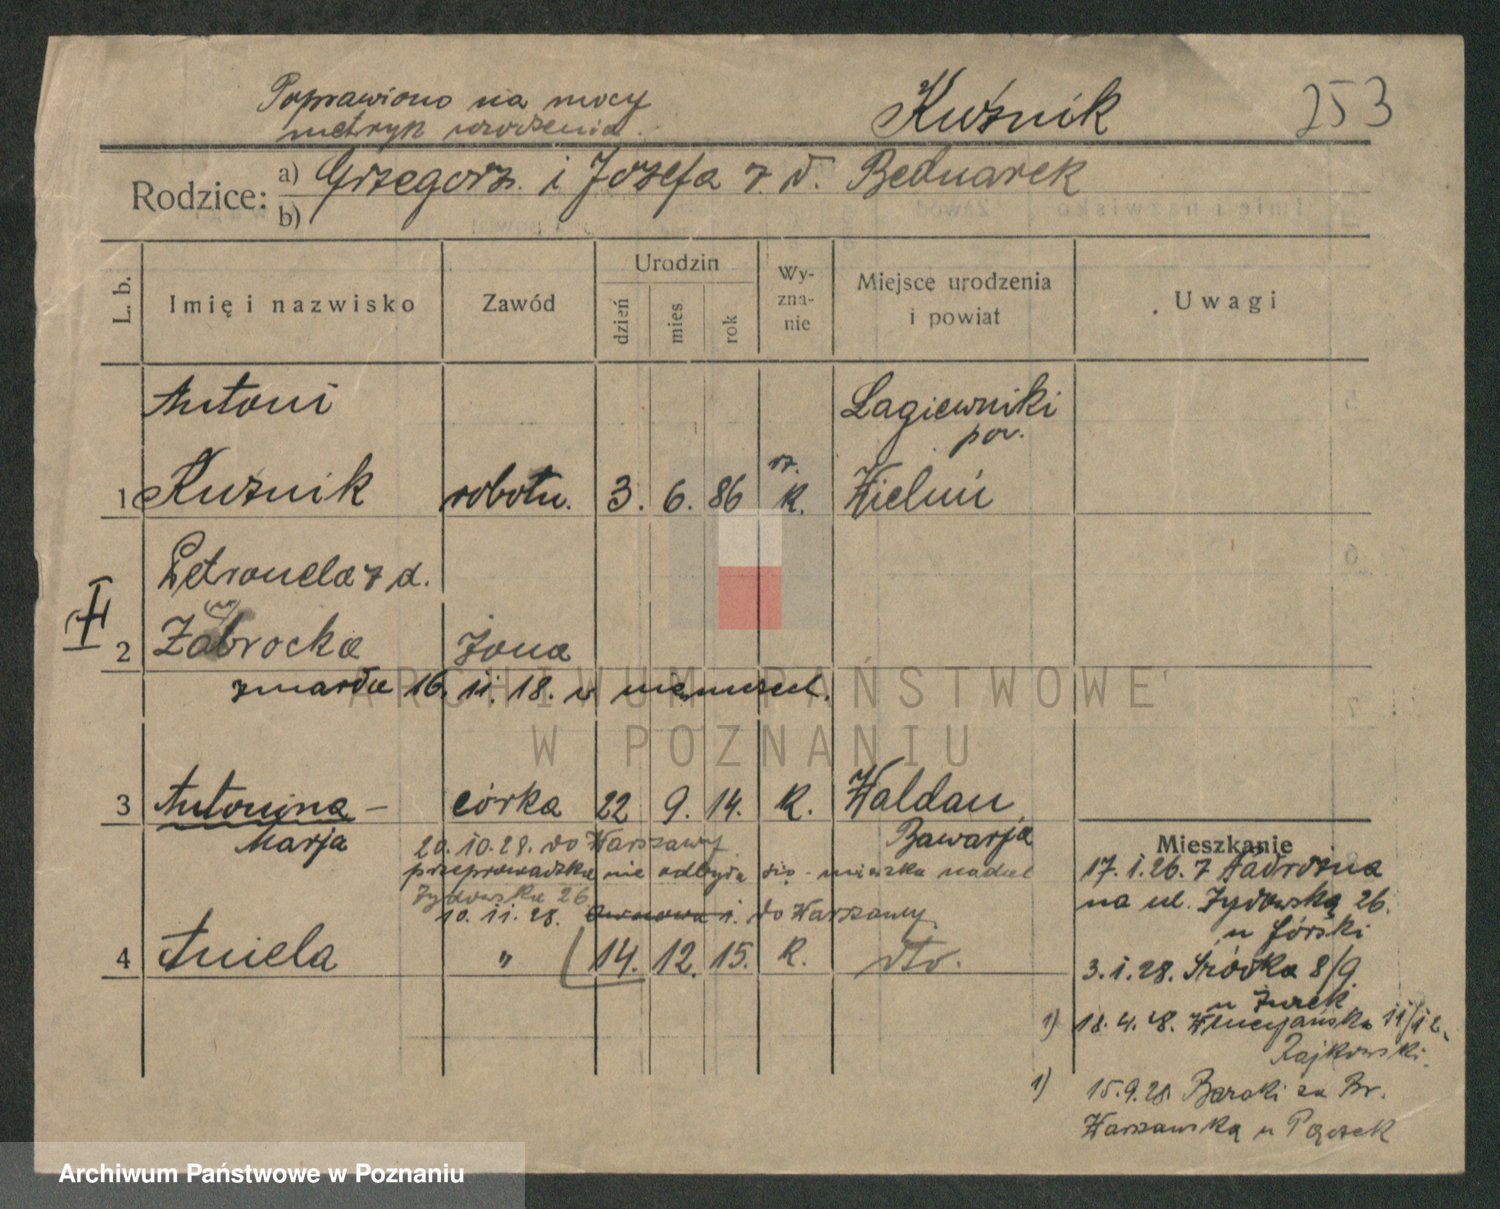 Poprawiono na mocy
metryk urodzenia.
Kuźnik
253
Rodzice:
a) Grzegorz i Józefa z d. Bednarek
b)
L. b.
Imię i nazwisko
Zawód
Urodzin
dzień
mies
rok
Wy-
zna-
nie
Miejsce urodzenia
i powiat
Uwagi
Antoni
Łagiewniki
pow.
1 Kuźnik robotn. 3. 6. 86 rz. K. Wieluń
Petronela z d.
II
2 Zabrocka żona
zmarła 16. 11. 18. w
3 Antonina – córka 22 9. 14. K. Waldau
Marja
Bawarja
20.10.28. do Warszawy
przeprowadzka nie odbyła się - mieszka nadal
Żydowska 26
10. 11. 28. do Warszawy
4 Aniela " 14. 12. 15. K. dto.
Mieszkanie
17.1.26. z
na ul. Żydowską 26.
u Górski
3.1.28. Śródka 8/9
u Żurek
1) 18.4.28. 11/12
Rajkowski
1) 15.9.28. Baraki za Br.
Warszawską u
ARCHIWUM PAŃSTWOWE
W POZNANIU
Archiwum Państwowe w Poznaniu